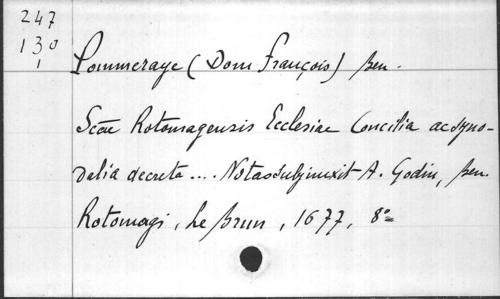 247
130
1
Pommeraye (Dom François) ben.
Sctae Rotomagensis Ecclesiae Concilia ac syno-
dalia decreta .... Notas subjunxit A. Godin, ben.
Rotomagi, Le Brun, 1677, 8°